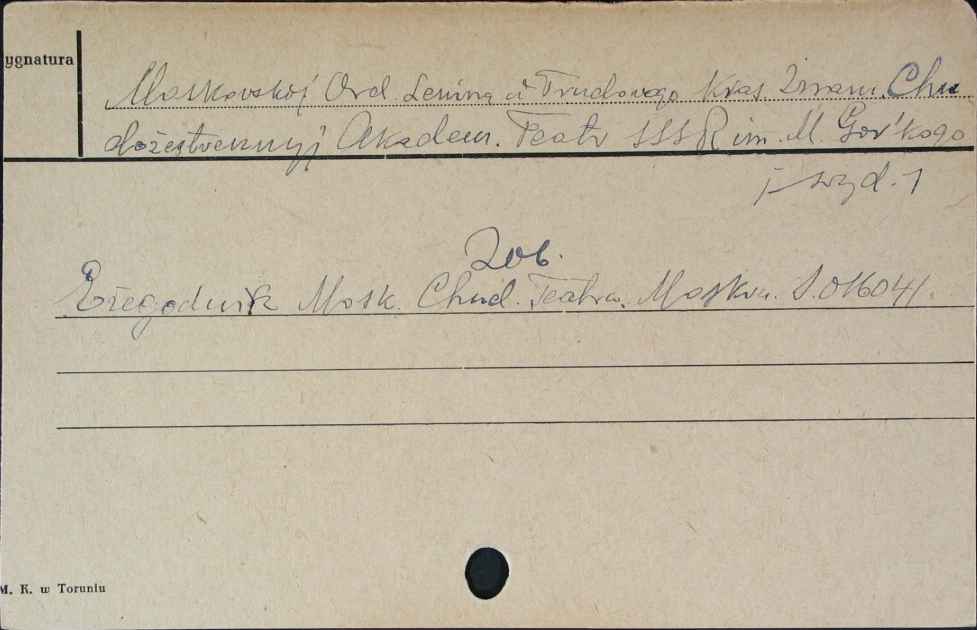 ygnatura
Moskovskij Ord. Lenina i Trudovogo Kras. Znam. Chu
dožestvennyj Akadem. Teatr SSSR im. M. Gor'kogo
j-wyd. 1
Zob.
Ežegodnik Mosk. Chud. Teatra. Moskva. S.016041.
M. K. w Toruniu